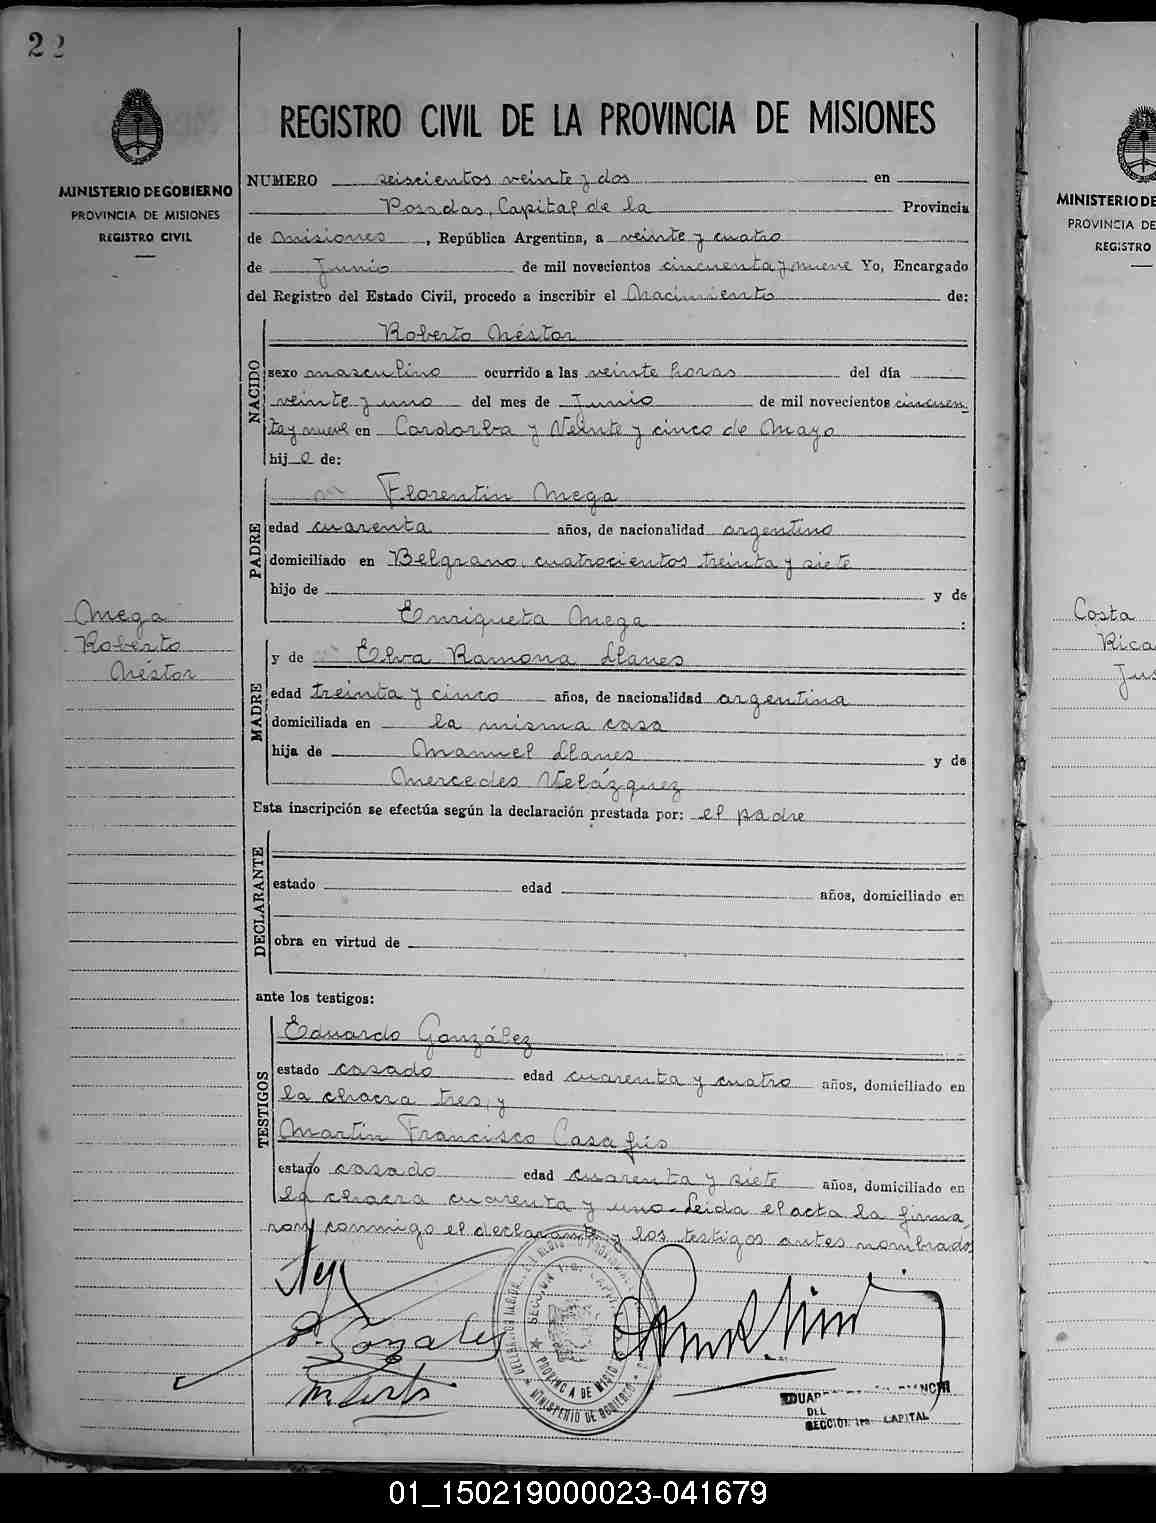 22
MINISTERIO DE GOBIERNO
PROVINCIA DE MISIONES
REGISTRO CIVIL
Mega
Roberto
Néstor
REGISTRO CIVIL DE LA PROVINCIA DE MISIONES
NUMERO seiscientos veinte y dos en
Posadas, Capital de la Provincia
de Misiones, República Argentina, a veinte y cuatro
de Junio de mil novecientos cincuenta y nueve Yo, Encargado
del Registro del Estado Civil, procedo a inscribir el Nacimiento de:
NACIDO
Roberto Néstor
sexo masculino ocurrido a las veinte horas del día
veinte y uno del mes de Junio de mil novecientos cincuen
ta y nueve en Cordorba y Veinte y cinco de Mayo
hijo de:
PADRE
Florentin Mega
edad cuarenta años, de nacionalidad argentino
domiciliado en Belgrano, cuatrocientos treinta y siete
hijo de y de
Enriqueta Mega :
MADRE
y de Elva Ramona Llanes
edad treinta y cinco años, de nacionalidad argentina
domiciliada en la misma casa
hija de Manuel Llanes y de
Mercedes Velázquez
Esta inscripción se efectúa según la declaración prestada por: el padre
DECLARANTE
estado edad años, domiciliado en
obra en virtud de
ante los testigos:
TESTIGOS
Eduardo González
estado casado edad cuarenta y cuatro años, domiciliado en
la chacra tres, y
Martin Francisco Casafús
estado casado edad cuarenta y siete años, domiciliado en
la chacra cuarenta y uno. Leida el acta la firma
ron conmigo el declarante y los testigos antes nombrados
SECCION 1ra. CAPITAL
PROVINCIA DE MISIONES
MINISTERIO DE GOBIERNO
DEL
SECCION 1ra. CAPITAL
MINISTERIO DE
PROVINCIA DE
REGISTRO
Costa
Rica
Jus
01_150219000023-041679